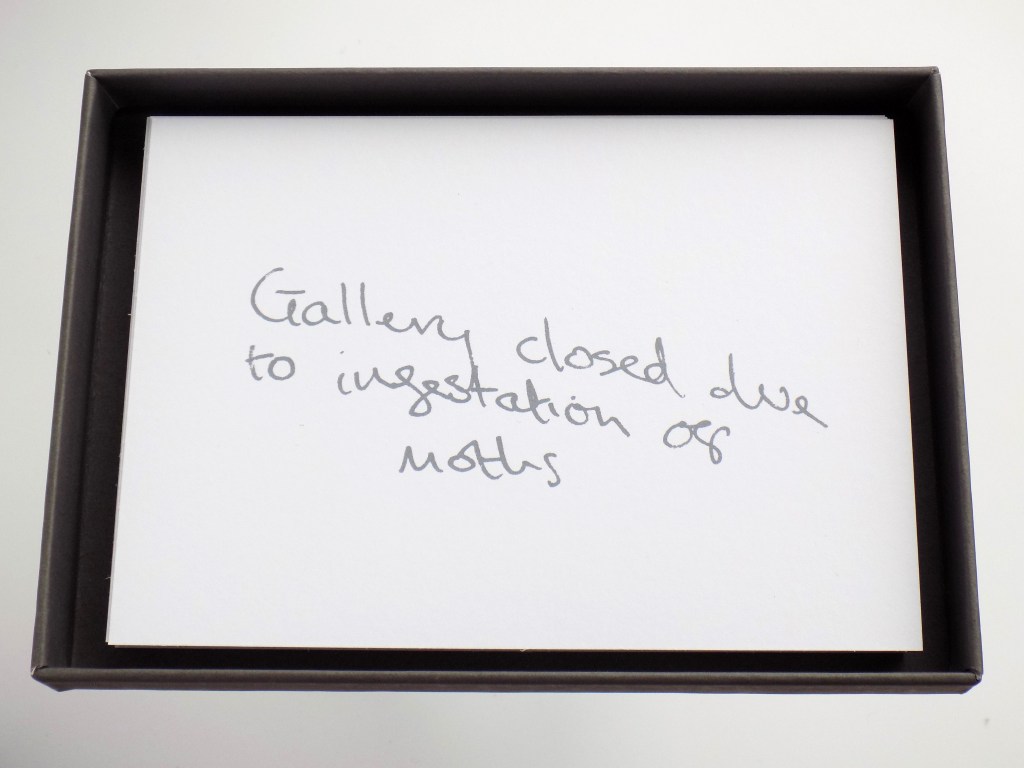 Gallery closed due
to infestation of
moths